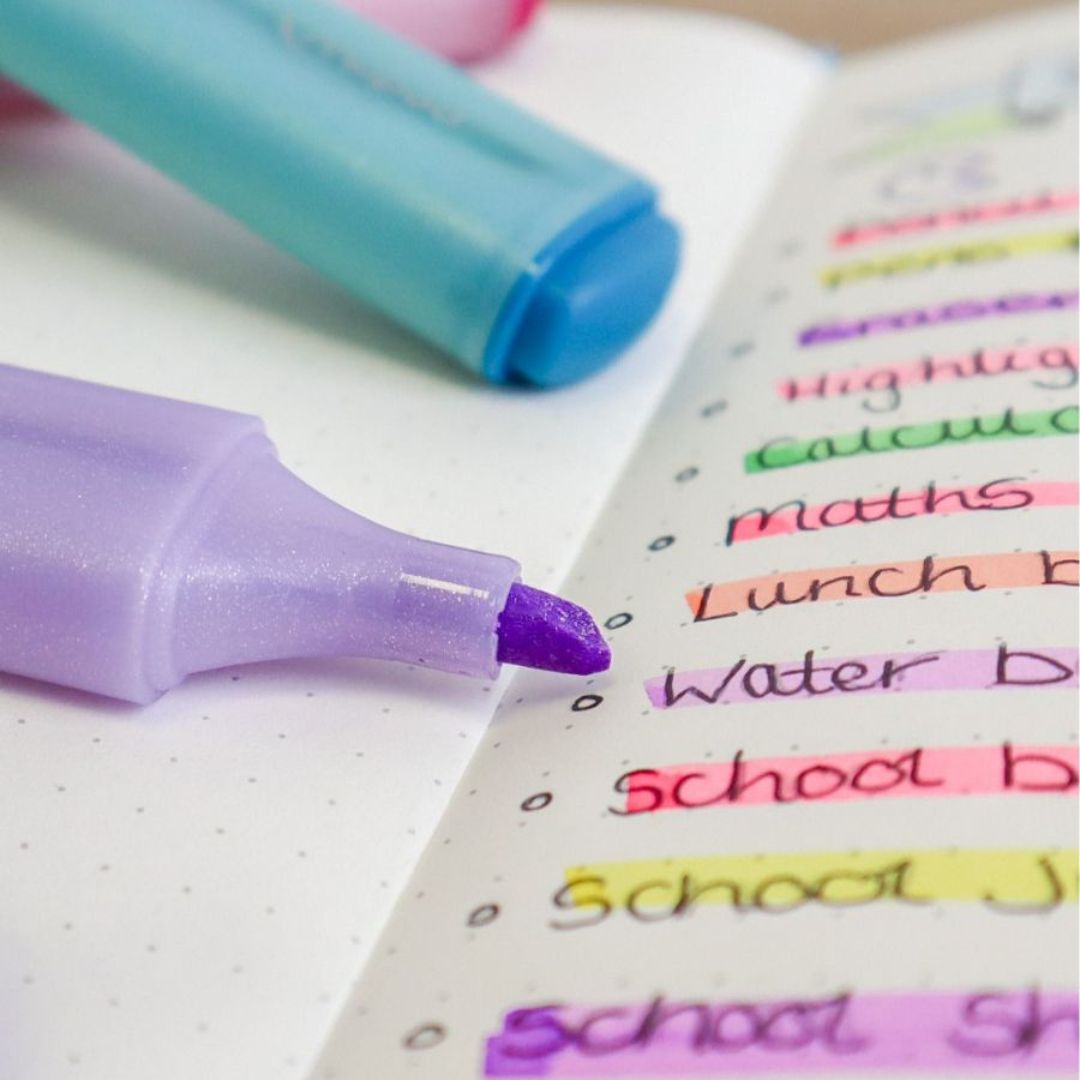 Pens
Eraser
Highlig
Calcul
maths
Lunch b
Water b
School b
School J
School Sh